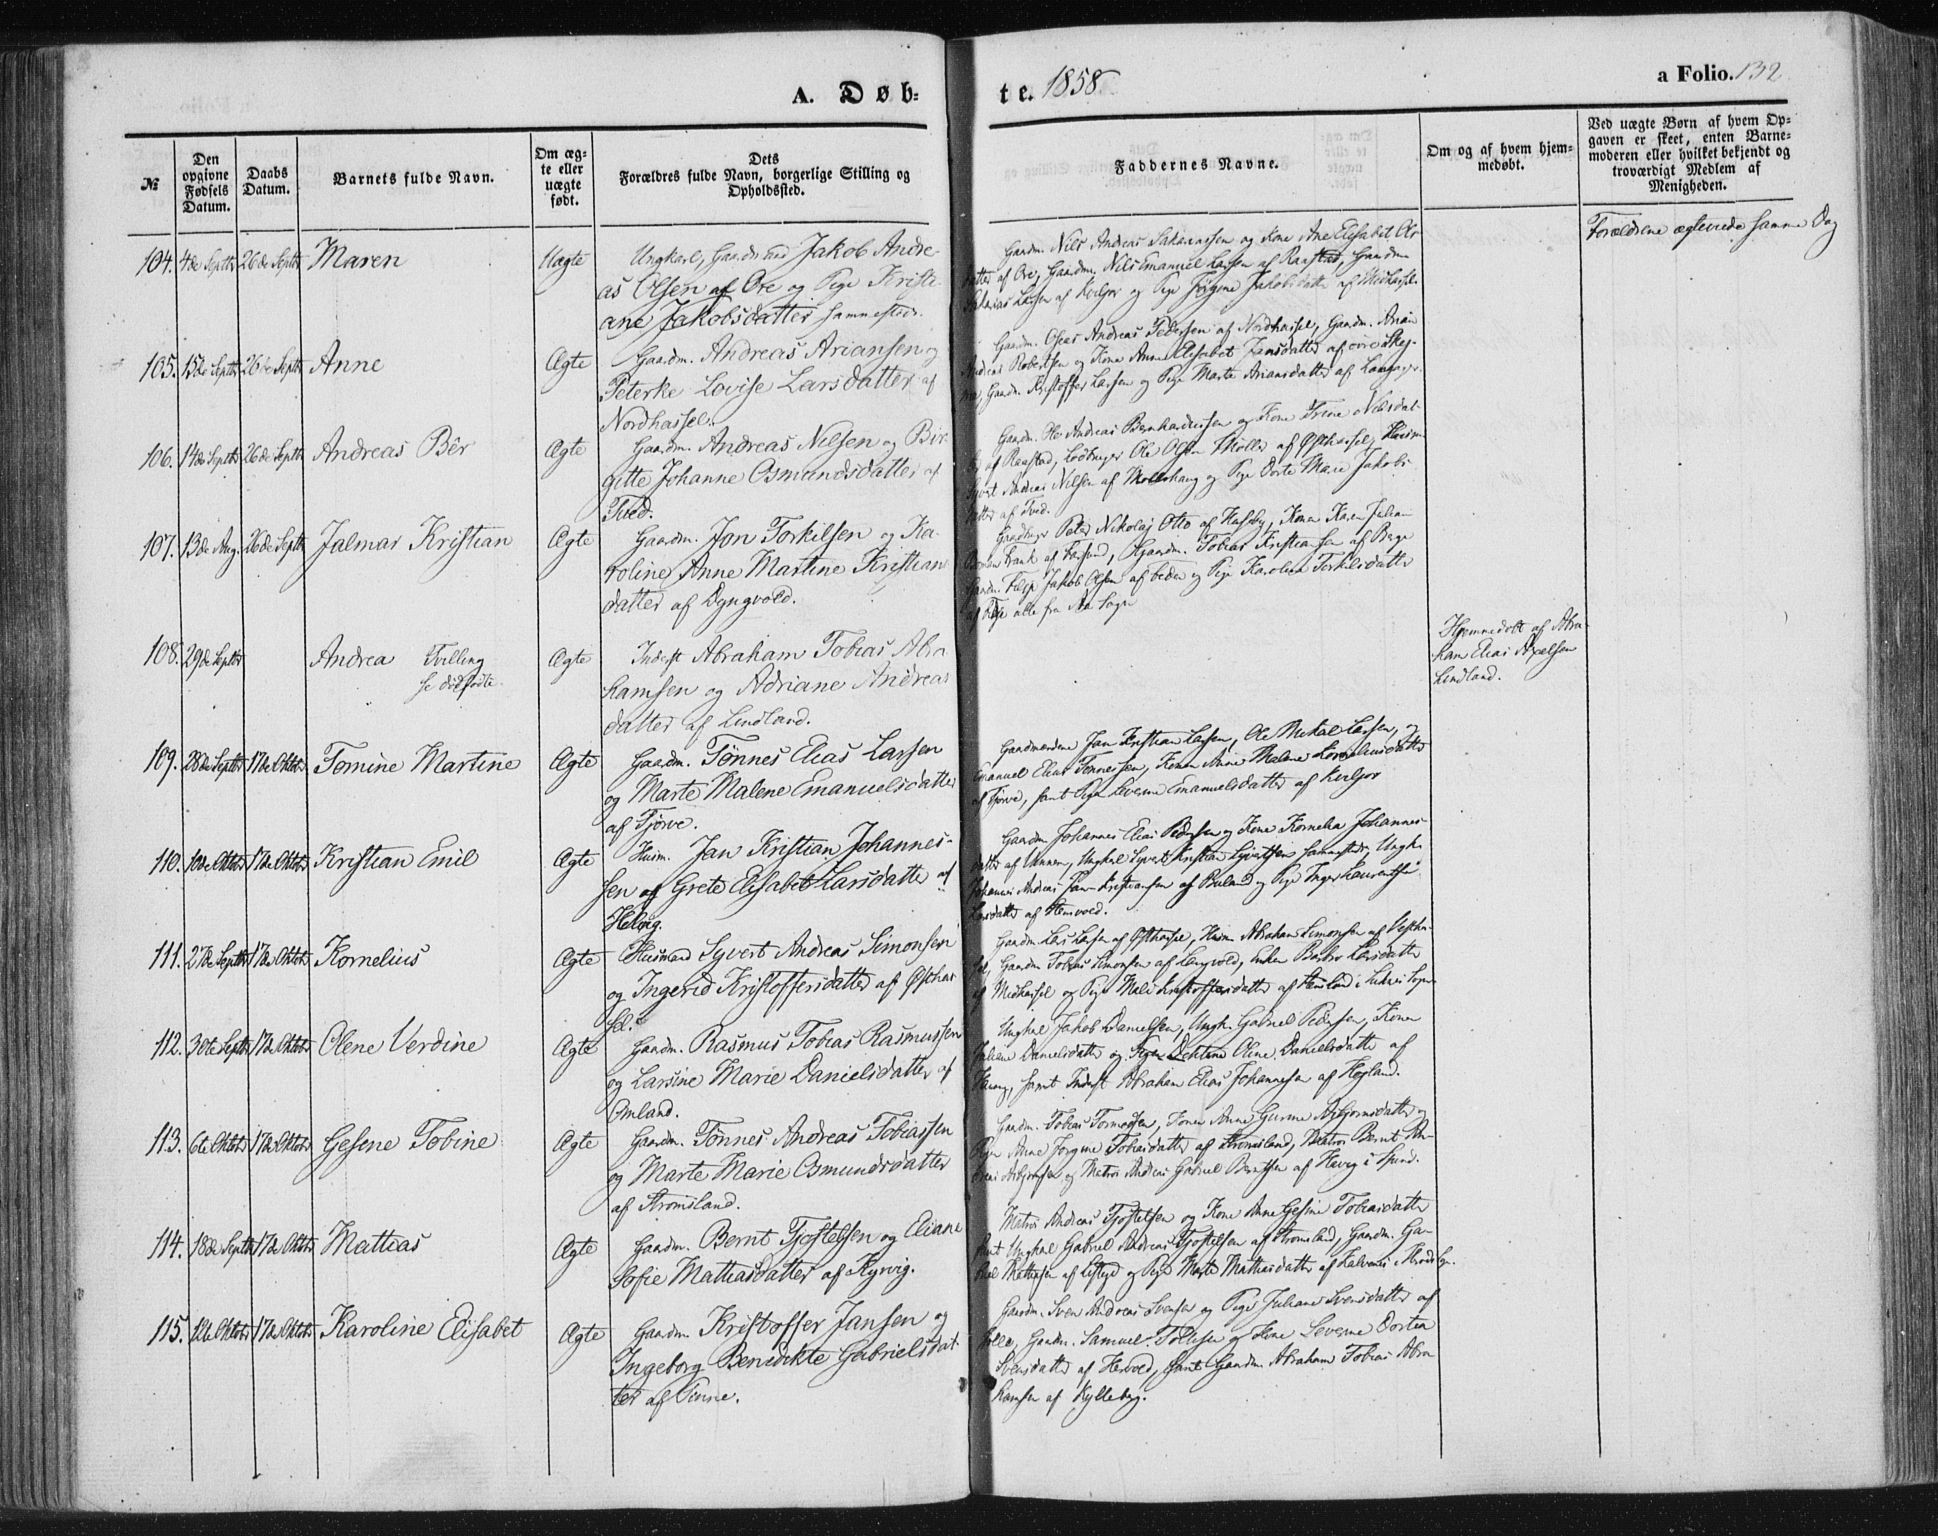 A. Døb-
te. 1858
a Folio. 132
№
Den opgivne Fødsels Datum.
Daabs Datum.
Barnets fulde Navn.
Om ægte eller uægte født.
Dets
Forældres fulde Navn, borgerlige Stilling og
Opholdssted.
Faddernes Navne.
Om og af hvem hjem-
medøbt.
Ved uægte Børn af hvem Op-
gaven er skeet, enten Barne-
moderen eller hvilket bekjendt og
troværdigt Medlem af
Menigheden.
104. 4de Septbr 26de Septbr Maren Uægte Ungkarl, Jakob Andre-
as Olsen af Ore og Pige Kristi-
ane Jakobsdatter sammesteds.
Gaardm. Nils Andreas Sakariassen og Kone Ane Elisabet
datter af Ore, Gaardm. Nils Emanuel Larsen af Raastad, Gaardm.
Sakarias Larsen af Kviljor og Pige Jørgine Jakobsdatter af Midhassel
Forældrene ægteviede samme Dag
105. 15de Septbr 26de Septbr Anne Ægte Gaardm. Andreas Ariansen og
Peterke Lovise Larsdatter af
Nordhassel.
Gaardm. Oseas Andreas Pedersen af Nordhassel, Gaardm. Arian
Andreas Robertsen og Kone Anne Elisabet Jansdatter af øvre Skeg-
Gaardm. Kristoffer Larsen og Pige Marte Ariansdatter af Langager
106. 14de Septbr 26de Septbr Andreas Bêr Ægte Gaardm. Andreas Nilsen og Bir-
gitte Johanne Osmundsdatter af
Tved.
Gaardm. Ole Andreas Bernhardussen og Kone Trine Nilsdat-
ter af Raastad, Ole Olsen Møller af Østhassel, Husm.
Syvert Andreas Nilsen af Mollehaug og Pige Dorte Marie Jakobs
datter af Tved.
107. 13de Aug. 26de Septbr Jalmar Kristian Ægte Gaardm. Jon Torkilsen og Ka-
roline Anne Martine Kristians
datter af Dyngvold.
Peter Nikolaj Otto af Husby, Kone Karen Juliane
af Farsund, Gaardm. Tobias Kristiansen af Berge
Gaardm. Jakob Olsen af og Pige Karoline Torkilsdatter
af alle fra Sogn
108. 29de Septbr Andrea Tvilling
se dødfødte.
Ægte Inderst Abraham Tobias Abra-
hamsen og Adriane Andreas
datter af Lindland.
Hjemmedøbt af Abra-
ham Elias Axelsen
Lindland.
109. 28de Septbr 17de Oktbr Tomine Martine Ægte Gaardm. Tønnes Elias Larsen
og Marte Malene Emanuelsdatter
af Tjørve.
Gaardmændene Jan Kristian Larsen, Ole Mikal Larsen, og
Emanuel Elias Tønnessen, Konen Anne Malene Korneliusdatter
af Tjørve, samt Pige Leverine Emanuelsdatter af Kviljor
110. 10de Oktbr 17de Oktbr Kristian Emil Ægte Husm. Jan Kristian Johannes-
sen og Grete Elisabet Larsdatter af
Helvig.
Gaardm. Johannes Elias Pedersen og Kone Kornelia Johannes-
datter af Unnem, Ungkarl Syvert Kristian Syvertsen sammesteds, Ungk.
Johannes Andreas Jan Kristiansen af og Pige Inger Laurentse
Larsdatter af Hemvold.
111. 27de Septbr 17de Oktbr Kornelius Ægte Husmand Syvert Andreas Simonsen
og Ingerid Kristoffersdatter af Østhas-
sel.
Gaardm. Lars Larsen af Østhassel, Husm. Abraham Simonsen af Vesthas-
sel, Gaardm. Tobias Simonsen af Langvold, Enken Larsdatter
af Midhassel og Pige Male Kristoffersdatter af i Liknes Sogn
112. 30te Septbr 17de Oktbr Olene Verdine Ægte Gaardm. Rasmus Tobias Rasmussen
og Larsine Marie Danielsdatter af
Omland.
Ungkarl Jakob Danielsen, Ungk. Gabriel Pedersen, Konen
Juliane Danielsdatter og Pigen Oline Danielsdatter af
samt Inderst Abraham Elias Johannesen af Høyland.
113. 6te Oktbr 17de Oktbr Gesene Tobine Ægte Gaardm. Tønnes Andreas Tobiassen
og Marte Marie Osmundsdatter
af Stromsland.
Gaardm. Tobias Konen Anne Gurine Asbjornsdatter og
Pigen Anne Jorgine Tobiasdatter af Stromsland, Matros Bernt An-
dreas Asbjornsen og Matros Andreas Gabriel Berntsen af Haveg i Spind.
114. 18de Septbr 17de Oktbr Mattias Ægte Gaardm. Bernt Tjostelsen og Eliane
Sofie Mattiasdatter af Kyrvig.
Matros Andreas Tjostelsen og Kone Anne Gesine Tobiasdatter
samt Ungkarl Gabriel Andreas Tjostelsen af Stromsland, Gaardm. Ga-
briel Mattiasen af og Pige Marte Mattiasdatter af
115. 12te Oktbr 17de Oktbr Karoline Elisabet Ægte Gaardm. Kristoffer Jansen og
Ingeborg Benedikte Gabrielsdat-
ter af Tinne.
Gaardm. Sven Andreas Svensen og Pige Juliane Svensdatter af
Gaardm. Samuel Tollesen og Kone Leverine Dortea
Svensdatter af Hervold, samt Gaardm. Abraham Tobias Abra-
hamsen af Kylleberg.